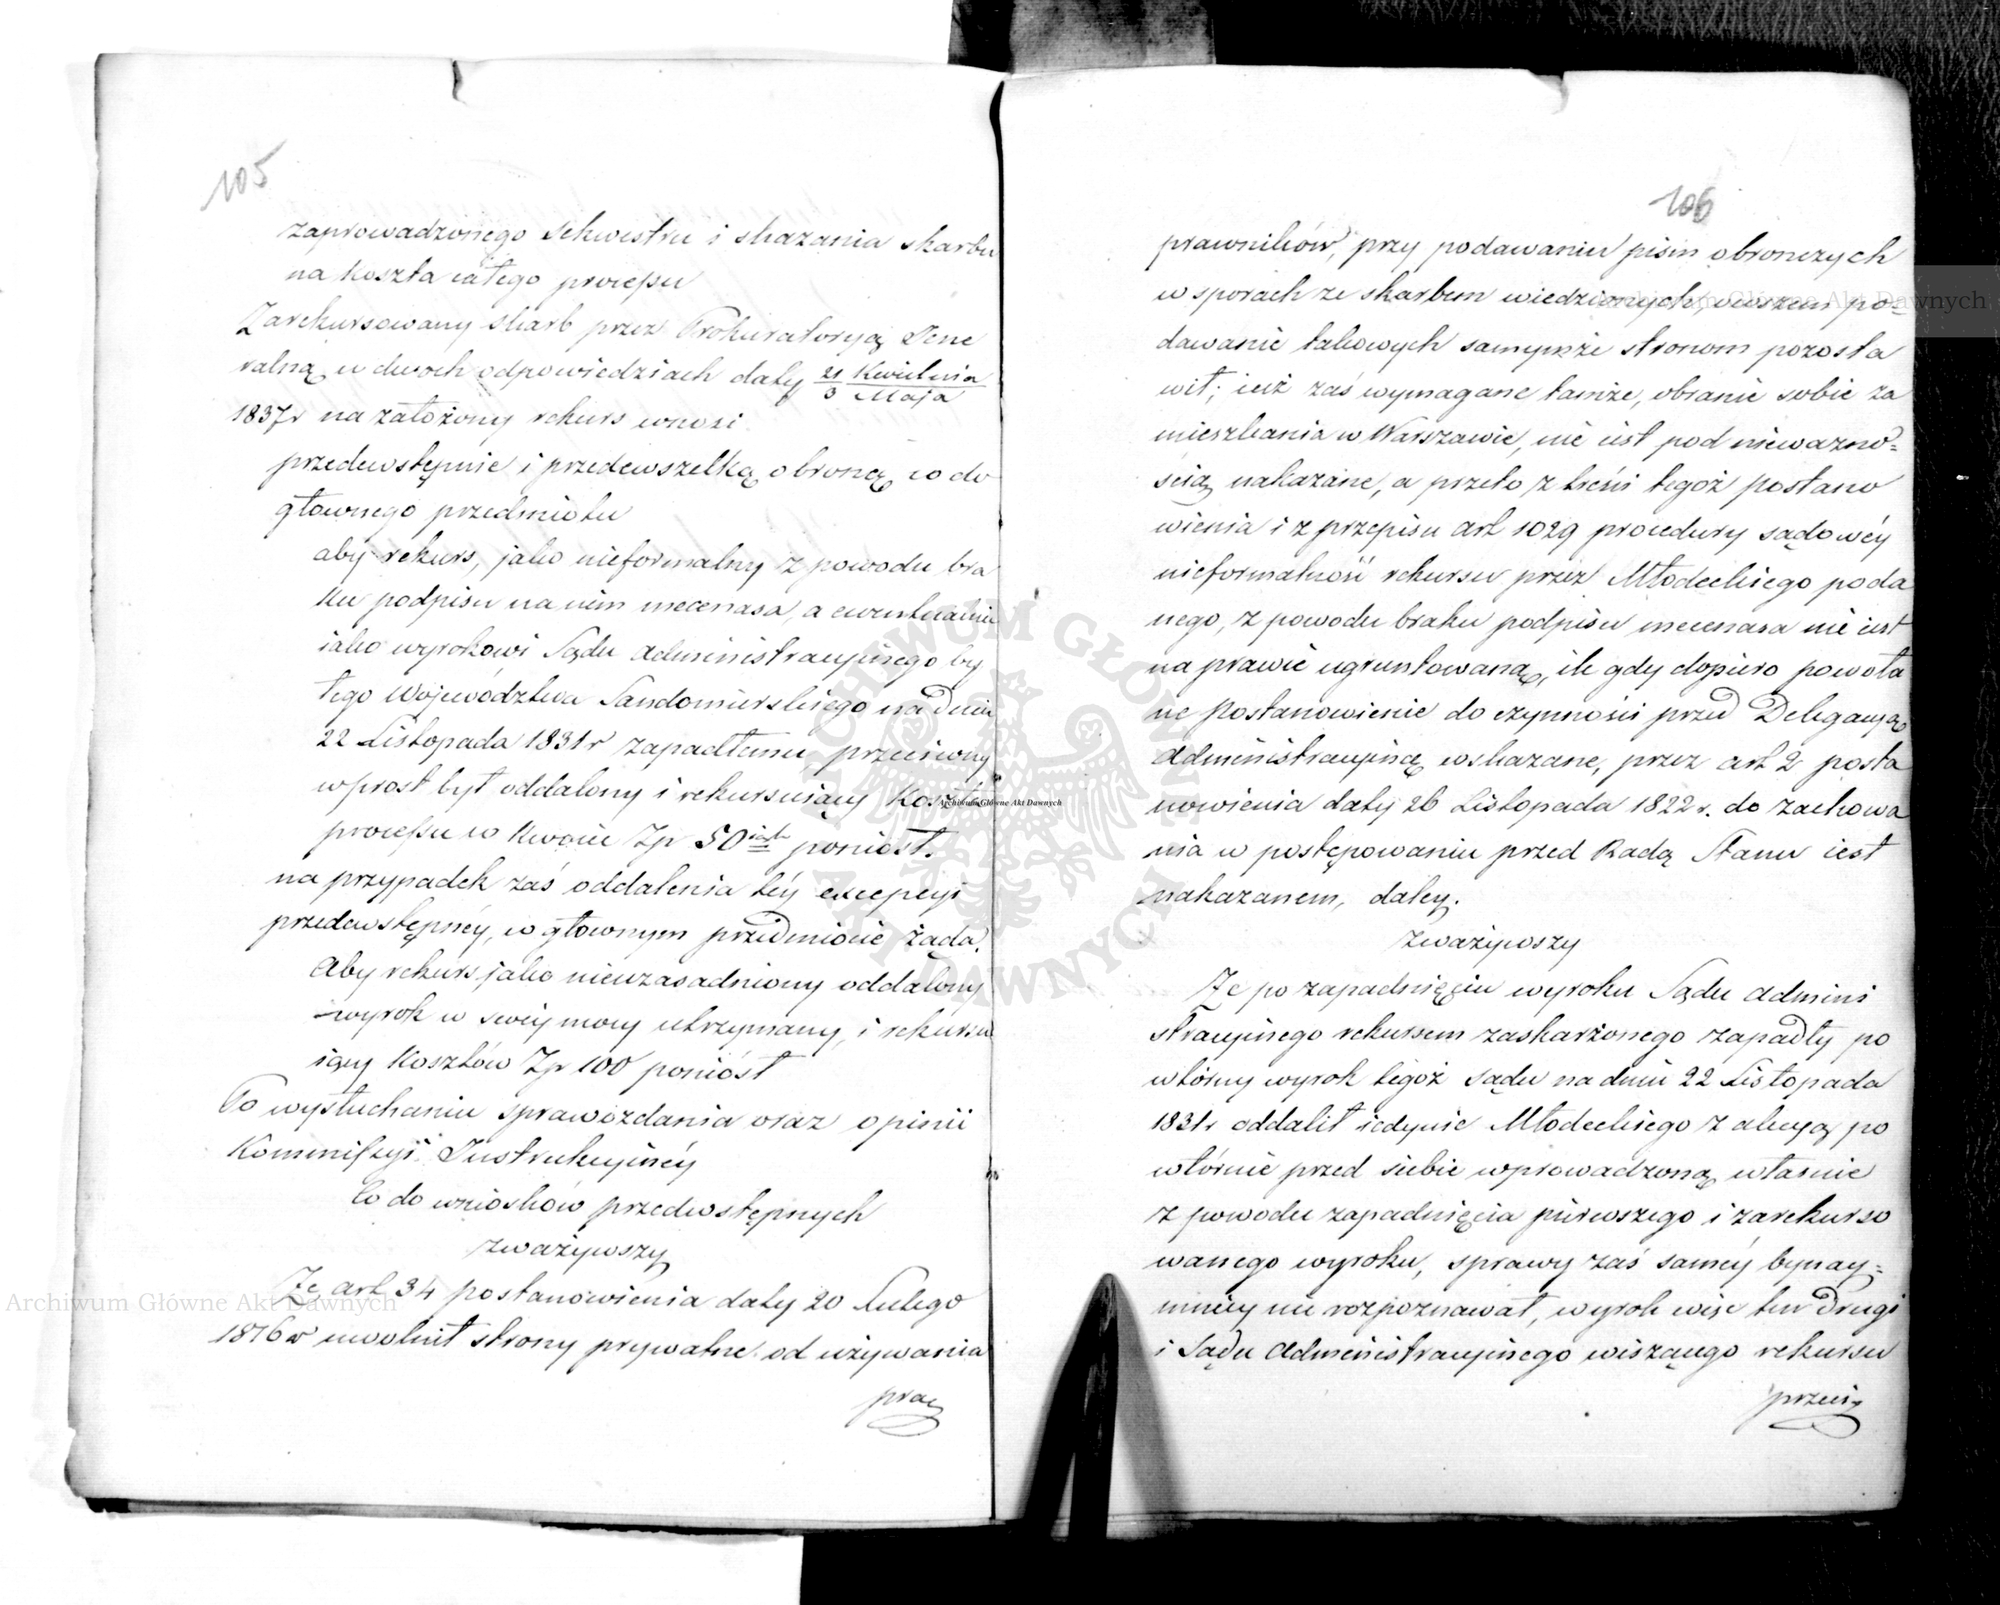 105
zaprowadzonego sekwestru i skazania skarbu
na koszta całego processu
Zarekursowany skarb przez Prokuratoryą Jene
ralną w dwoch odpowiedziach daty 21 Kwietnia / 3 Maja
1837r na założony rekurs wnosi
przedewstępnie i przedewszelką obroną co do
głownego przedmiotu
aby rekurs, jako nieformalny z powodu bra
ku podpisu na nim mecenasa, a ewentualnie
iako wyrokowi Sądu Administracyinego by
łego Województwa Sandomierskiego na dniu
22 Listopada 1831r zapadłemu przeciwny
wprost był oddalony i rekursuiący koszta
processu w kwocie Zp 50 poniosł.
na przypadek zaś oddalenia téy excepcyi
przedewstępnéy, w głownym przedmiocie żąda.
Aby rekurs jako nieuzasadniony oddalony
wyrok w swéy mocy utrzymany, i rekursu
iący kosztów Zp 100 poniósł
Po wysłuchaniu sprawozdania oraz opinii
Kommissyi Instrukcyinéy
Co do wniosków przedwstępnych
zważywszy
Że art 34 postanowienia daty 20 Lutego
1816r uwolnił strony prywatne od używania
praw
106
prawników, przy podawaniu pism obronczych
w sporach ze skarbem wiedzionych, owszem po=
dawanie takowych samymże stronom pozosta
wił; iéż zaś wymagane tamże, obranie sobie za
mieszkania w Warszawie, nie iest pod nieważno=
ścią nakazane, a przeto z treści tegoż postano
wienia i z przepisu art 1029 procedury sądowéy
nieformalność rekursu przez Młodeckiego poda
nego, z powodu braku podpisu mecenasa nie iest
na prawie ugruntowaną, ile gdy dopiero powoła
ne postanowienie do czynności przed Delegacyą
Administracyiną wskazane, przez art 2 posta
nowienia daty 26 Listopada 1822 r. do zachowa
nia w postępowaniu przed Radą Stanu iest
nakazanem, daley.
zważywszy
Że po zapadnięciu wyroku Sądu Admini
stracyinego rekursem zaskarżonego zapadły po
wtórny wyrok tegoż sądu na dniu 22 Listopada
1831r oddalił iedynie Młodeckiego z akcyą po
wtórnie przed siebie wprowadzoną, własnie
z powodu zapadnięcia pierwszego i zarekurso
wanego wyroku, sprawy zaś saméy bynay=
mniéy nie rozpoznawał, wyrok więc ten drugi
i Sądu Administracyinego wiszącego rekursu
przeciw
Archiwum Główne Akt Dawnych
Archiwum Główne Akt Dawnych
Archiwum Główne Akt Dawnych
ARCHIWUM GŁÓWNE AKT DAWNYCH